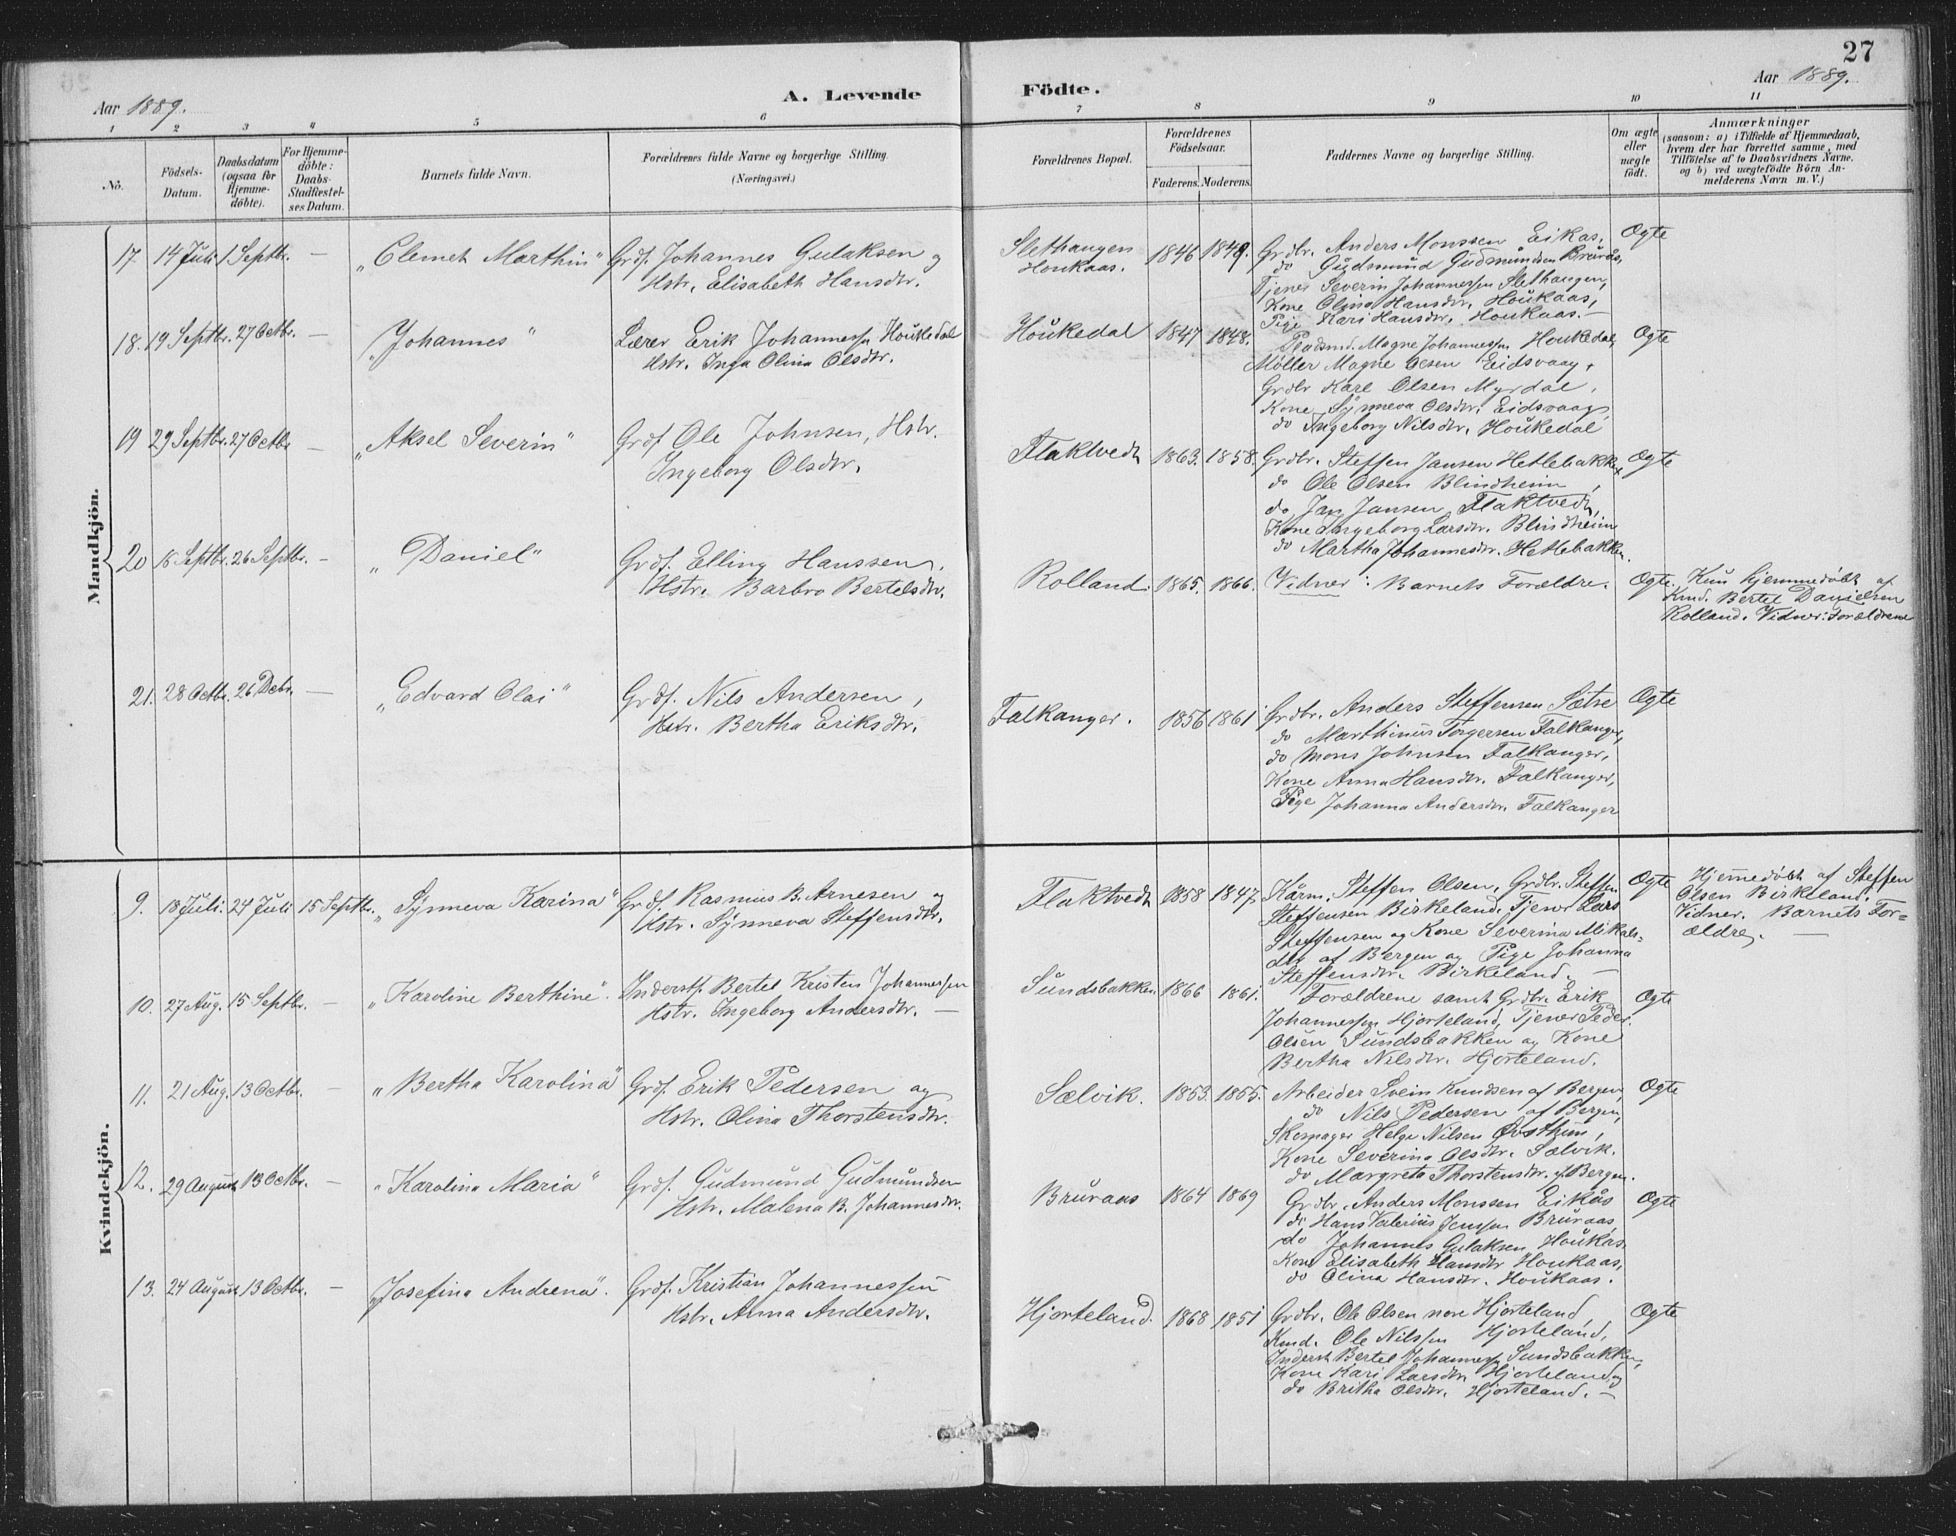 27
Aar 1889.
A. Levende
Födte.
Aar 1889.
1 2 3 4 5 6 7 8 9 10 11
No.
Födsels-
Datum.
Daabsdatum
(ogsaa for
Hjemme-
döbte).
For Hjemme-
döbte:
Daabs-
Stadfæstel-
ses Datum.
Barnets fulde Navn.
Forældrenes fulde Navne og borgerlige Stilling.
(Næringsvei.)
Forældrenes Bopæl.
Forældrenes
Födselsaar.
Faderens. Moderens.
Faddernes Navne og borgerlige Stilling.
Om ægte
eller
uægte
födt.
Anmærkninger
(saasom: a) i Tilfælde af Hjemmedaab,
hvem der har forrettet samme, med
Tilföielse af to Daabsvidners Navne.
og b) ved uægtefödte Börn An-
melderens Navn m. V.)
Mandkjön.
17 14 Juli 1 Septbr. — "Clemet Marthin" Grdf. Johannes Gulaksen og
Hstr. Elisabeth Hansdtr.
Slethaugen
Houkaas.
1846 1849.
Grdbr. Anders Monssen Eikas,
do Gudmund Gudmundsen Brurås,
Tjener Severin Johannessen Slethaugen,
Kone Olina Hansdtr. Houkaas,
Pige Kari Hansdtr. Houkaas. —
Ogte
18. 19 Septbr. 27 Octbr. — "Johannes" Lærer Erik Johannessn Houkedal
Hstr. Inga Olina Olsdtr.
Houkedal 1847 1848.
Magne Johannessn Houkedal,
Møller Magne Olsen Eidsvaag,
Grdbr Karl Olsen Myrdal,
Kone Synneva Olsdtr. Eidsvaag,
do Ingeborg Nilsdtr. Houkedal
Ogte
19 29 Septbr. 27 Octbr — "Aksel Severin" Grdf Ole Johnsen, Hstr.
Ingeborg Olsdtr.
Flaktvedt 1863. 1858.
Grdbr. Steffen Jansen Hetlebakken
do Ole Olsen Blindheim,
do Jan Jansen Flaktvedt,
Kone Ingeborg Larsdtr. Blindheim
do Martha Johannesdtr. Hetlebakken.
Ogte
20 18 Septbr. 26 Septbr. — "Daniel" Grdf. Elling Hanssen,
Hstr. Barbro Bertelsdtr.
Rolland. 1865. 1866. Vidner: Barnets Forældre. Ogte.
Kun hjemmedøbt af
Kmd. Bertel Danielsen
Rolland. Vidner: Forældrene
21. 28 Octbr. 26 Debr. — "Edvard Olai" Grdf. Nils Andersen,
Hstr. Bertha Eriksdtr.
Falkanger. 1856 1861
Grdbr. Anders Steffensen Sætre
do Marthinus Torgersen Falkanger,
do Mons Johnsen Falkanger,
Kone Anna Hansdtr. Falkanger,
Pige Johanna Andersdtr. Falkanger
Ogte
Kvindekjön.
9. 18 Juli. 24 Juli 15 Septbr. "Synneva Karina" Grdf Rasmus B. Arnesen og
Hstr. Synneva Steffensdtr.
Flaktvedt 1858 1847.
Kårm. Steffen Olsen, Grdbr. Steffen
Steffensen Birkeland. Tjener Lars
Steffensen og Kone Severina Mikals-
dtr af Bergen og Pige Johanna
Steffensdtr. Birkeland. —
Ogte
Hjemmedøbt af Steffen
Olsen Birkeland.
Vidner. Barnets For-
ældre. —
10. 27 Aug. 15 Septbr. — "Karoline Berthine". Inderst. Bertel Kristen Johannessen
Hstr. Ingeborg Andersdtr. —
Sundsbakken. 1866 1861.
Forældrene samt Grdbr. Erik
Johannessen Hjorteland, Tjener Peder
Olsen Sundsbakken og Kone
Bertha Nilsdtr. Hjorteland.
Ogte
11. 21 Aug. 13 Octbr. — "Bertha Karolina" Grdf. Erik Pedersen og
Hstr. Olina Thorstensdtr.
Sælvik. 1853. 1855.
Arbeider Svein Knudsen af Bergen,
do Nils Pedersen af Bergen,
Skomager Helge Nilsen Østhun,
Kone Severina Olsdtr. Sælvik.
do Margreta Thorstensdtr. af Bergen.
Ogte
12. 29 August 13 Octbr. — "Karolina Maria" Grdf. Gudmund Gudmundsen
Hstr. Malena B. Johannesdtr.
Bruraas 1864 1869
Grdbr. Anders Monssen Eikås
do Hans Valerius Jenssen Bruraas,
do Johannes Gulaksen Houkås.
Kone Elisabeth Hansdtr Houkaas,
do Olina Hansdtr. Houkaas.
Ogte
13. 24 August 13 Octbr. — "Josefina Andrena". Grdf. Kristian Johannessen
Hstr. Anna Andersdtr.
Hjorteland. 1868 1851
Grdbr. Ole Olsen nore Hjorteland,
Kmd. Ole Nilssen Hjorteland,
Inderst Bertel Johannessn Sundsbakken,
Kone Kari Larsdtr. Hjorteland og
do Britha Olsdtr. Hjorteland. —
Ogte